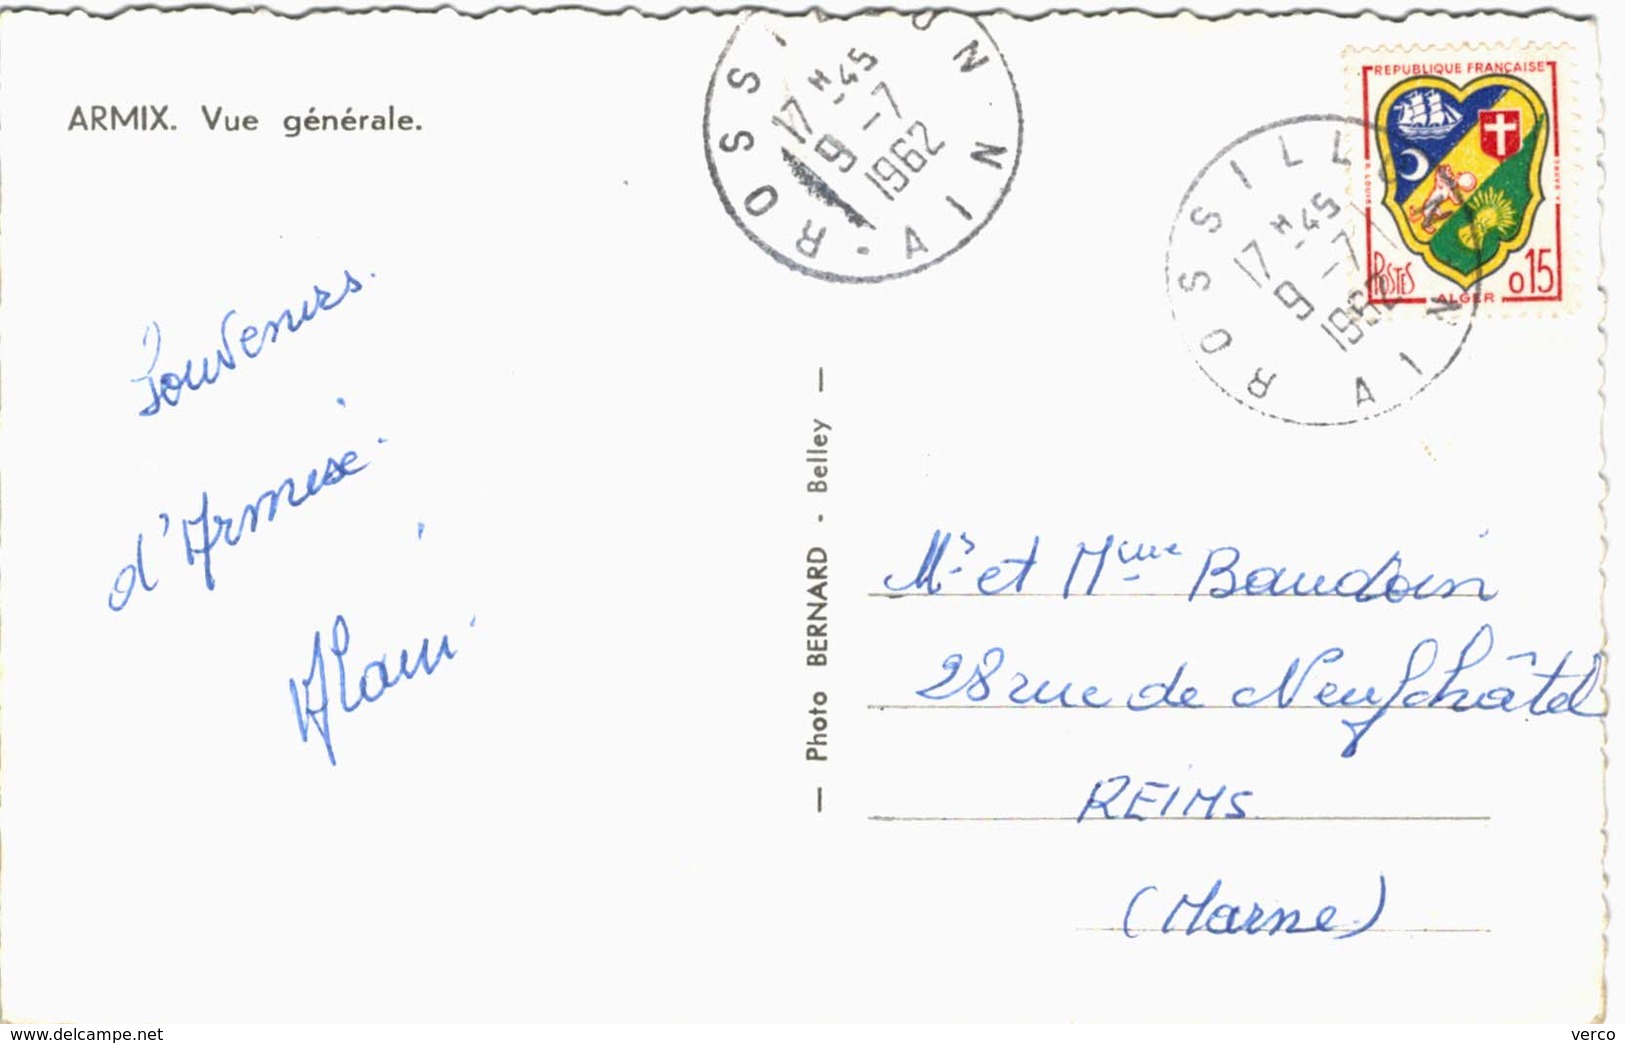 ARMIX. Vue générale.
ROSSILLON
AIN
17 H -45
9 -7
1962
ROSSILLON
AIN
17 H -45
9 -7
1962
REPUBLIQUE FRANÇAISE
POSTES
ALGER
0,15
Souvenirs.
d'Armise.
Alain.
— Photo BERNARD - Belley —
Mr et Mme Baudoin
28 rue de Neufchâtel
REIMS
(Marne)
www.delcampe.net
verco